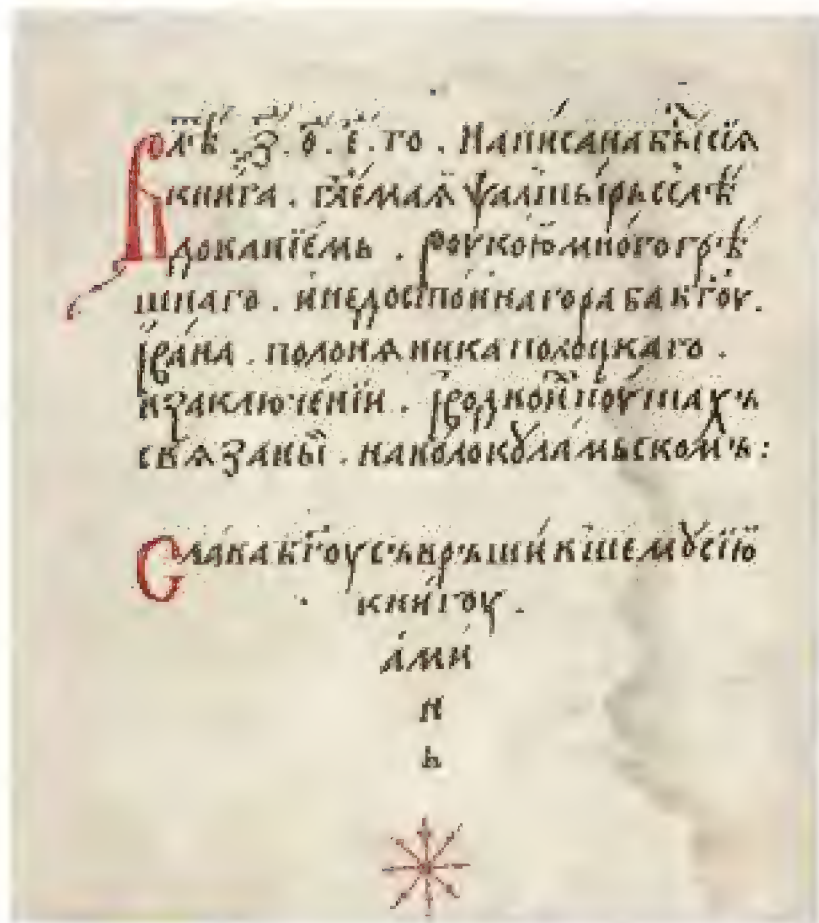 В лѣ . з҃ . о҃ . е҃ . го . написана бы́ сїѧ
книга . гл҃е́маѧ ѱалты́рь с слѣ
дованїемь . роукою мно́гогрѣ
шнаго . и недосто́инаго раба бг҃оу .
і҆ва́на . полонѧника полоцкаго .
и заключе́нїи . і҆ родно
свѧзаны̏ . на волокꙋла́мьском̾ъ :
Сла́ва бг҃оу съвръши́вшемꙋ сїю̀
кни́гоу .
а́ми́
н
ь